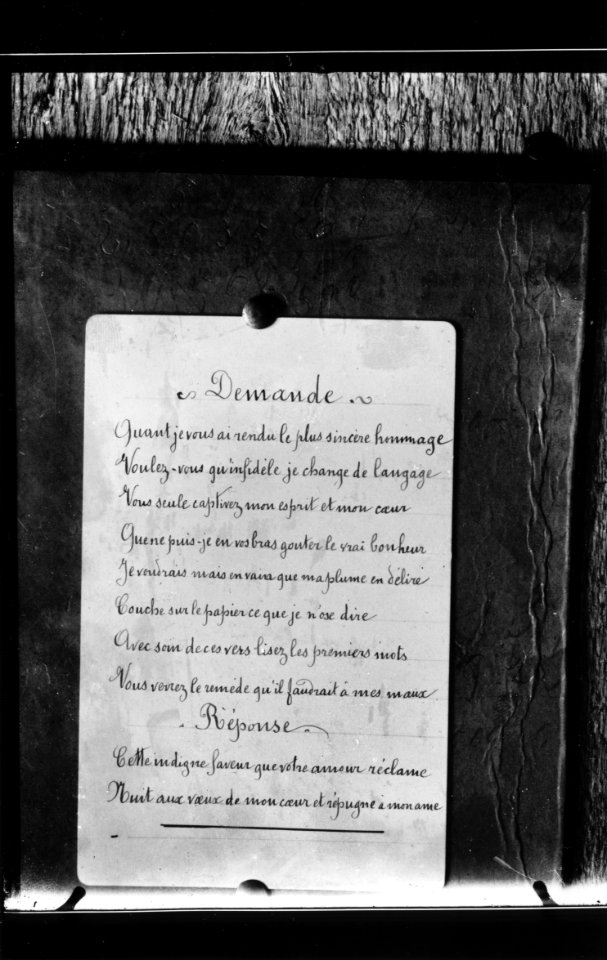 Demande
Quant je vous ai rendu le plus sincère hommage
Voulez-vous qu'infidèle je change de langage
Vous seule captivez mon esprit et mon cœur
Que ne puis-je en vos bras gouter le vrai bonheur
Je voudrais mais en vain que ma plume en délire
Couche sur le papier ce que je n'ose dire
Avec soin de ces vers lisez les premiers mots
Vous verrez le remède qu'il faudrait à mes maux
Réponse
Cette indigne faveur que votre amour réclame
Nuit aux vœux de mon cœur et répugne à mon ame